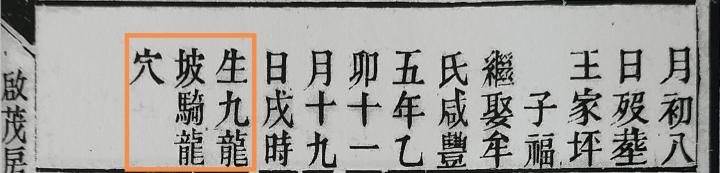 月初八
日歿塟
王家坪
子福
繼娶牟
氏咸豐
五年乙
卯十一
月十九
日戌時
生九龍
坡騎龍
穴
啟茂房